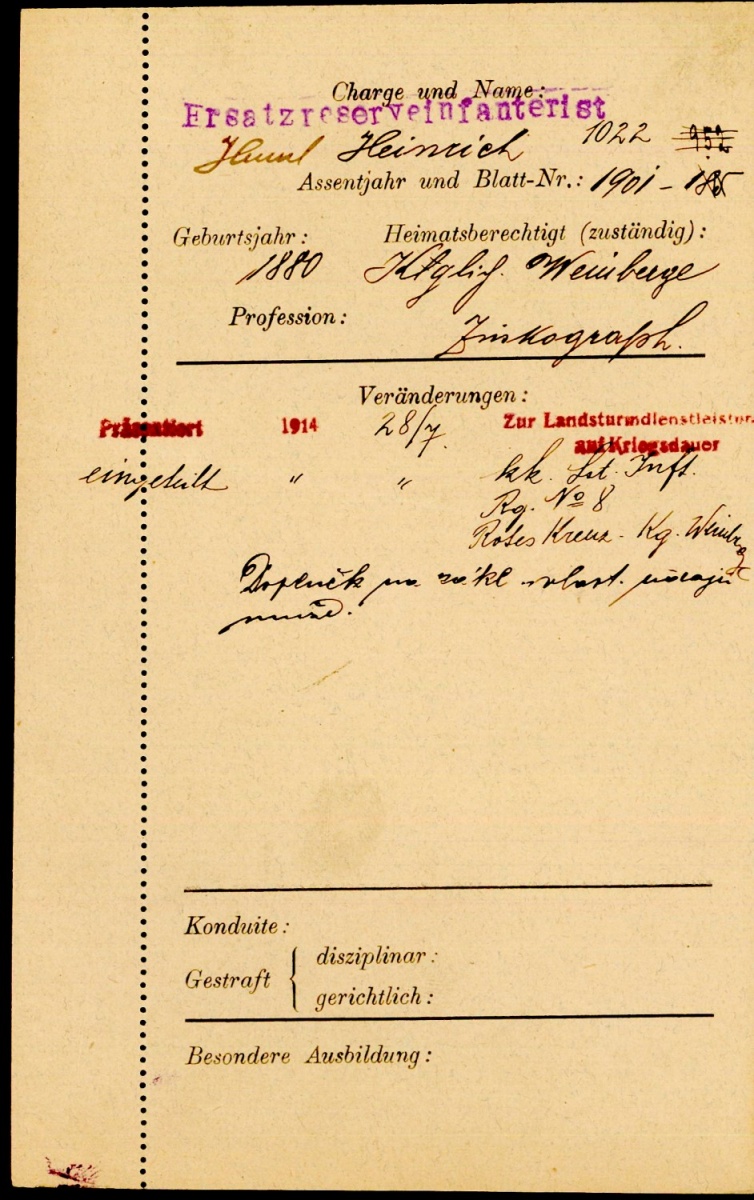 Charge und Name:
Ersatzreserveinfanterist
Heinrich 1022 952
Assentjahr und Blatt-Nr.: 1901 -
Geburtsjahr: Heimatsberechtigt (zuständig):
1880 Kgl. Weinberge
Profession:
Zinkograph.
Veränderungen:
Präsentiert 1914 28/7. Zur Landsturmdienstleistung
auf Kriegsdauer
eingeteilt " " kk. Lst. Inft.
Rg. No 8
Rotes Kreuz - Kg. Weinberge
Doplněk na zákl. vlast. údajů
Konduite:
Gestraft { disziplinar:
gerichtlich:
Besondere Ausbildung: